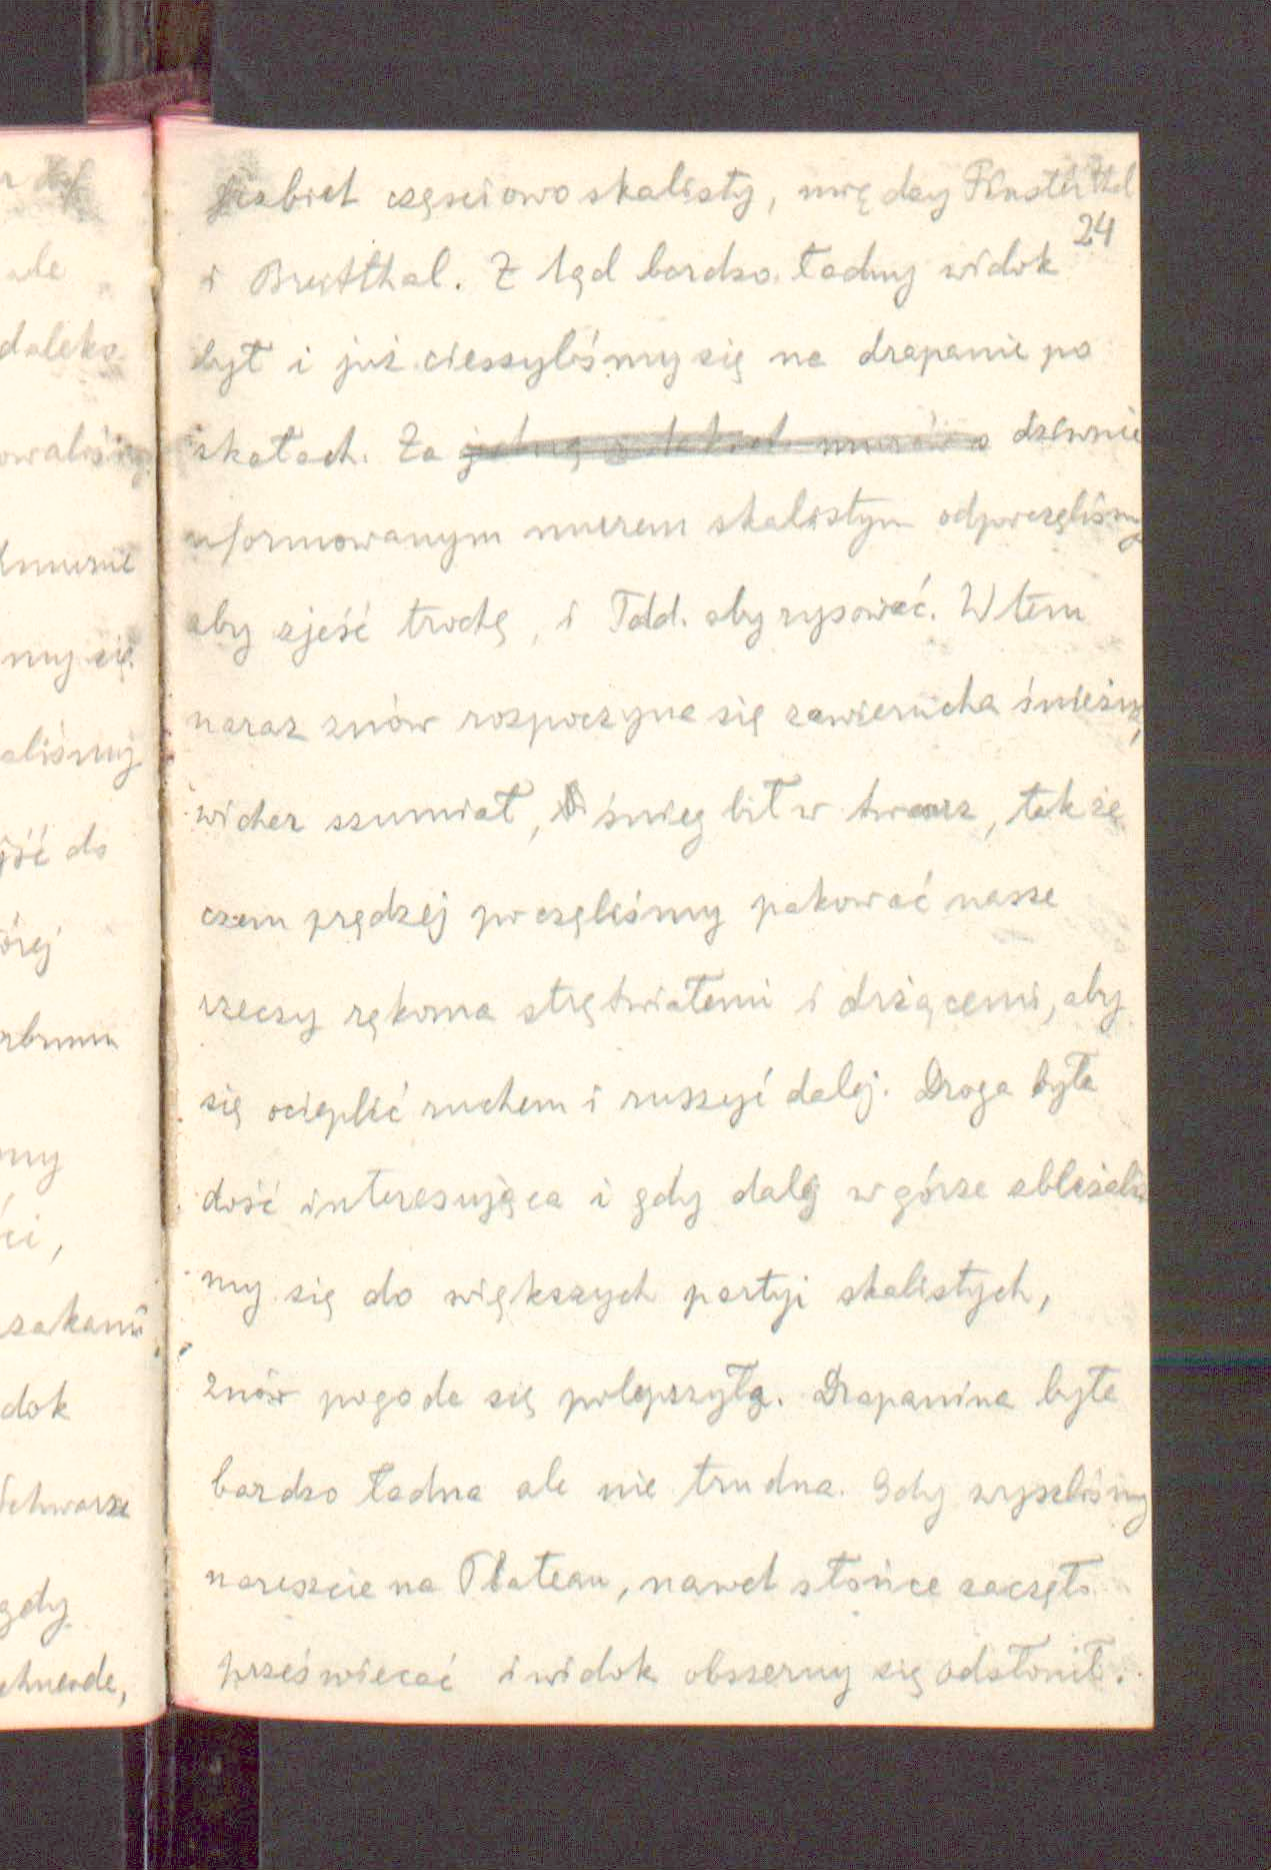 r
ale
daleko
owaliśmy
hmurne
my się
aliśmy
jść do
órej
my
ści,
dok
Schwarze
gdy
chneide,
grzbiet częsciowo skalisty, między Finsterthal
24
i Breitthal. Z tąd bardzo ładny widok
był i już cieszyliśmy się na drapanie po
skałach. Za dziwnie
uformowanym murem skalistym odpoczęliśmy
aby zjeść trochę, i Tdd. aby rysować. W tem
naraz znów rozpoczyna się zawierucha śnieżna,
wicher szumiał, śnieg bił w twarz, tak że
czem prędzej poczęliśmy pakować nasze
rzeczy rękoma strętwiałemi i drżącemi, aby
się ocieplić ruchem i ruszyć dalej. Droga była
dość interesująca i gdy dalej w górze zbliżaliś
my się do większych partyi skalistych,
znów pogoda się polepszyła. Drapanina była
bardzo ładna ale nie trudna. Gdy wyszliśmy
nareszcie na Plateau, nawet słońce zaczęło
przeświecać i widok obszerny się odsłonił.